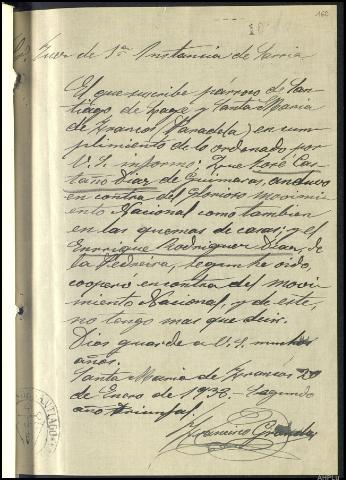 168
Sr. Juez de 1ª Instancia de Sarria
El que suscribe párroco de San-
tiago de Lage y Santa Maria
de Francos (Paradela) en cum-
plimiento de lo ordenado por
V.S. informo: Que José Cas-
taño Díaz de Guimaras, anduvo
en contra del Glorioso Movimi-
ento Nacional como tambien
en las quemas de casas; y el
Enrique Rodriguez Diaz, de
la Pedreira, segun he oido,
coopero en contra del movi-
miento Nacional, y de este,
no tengo mas que decir.
Dios guarde a V.S. muchos
años.
Santa Maria de Francos 20
de Enero de 1938.- Segundo
año Triunfal.
Francisco
SANTIAGO
AHPLu